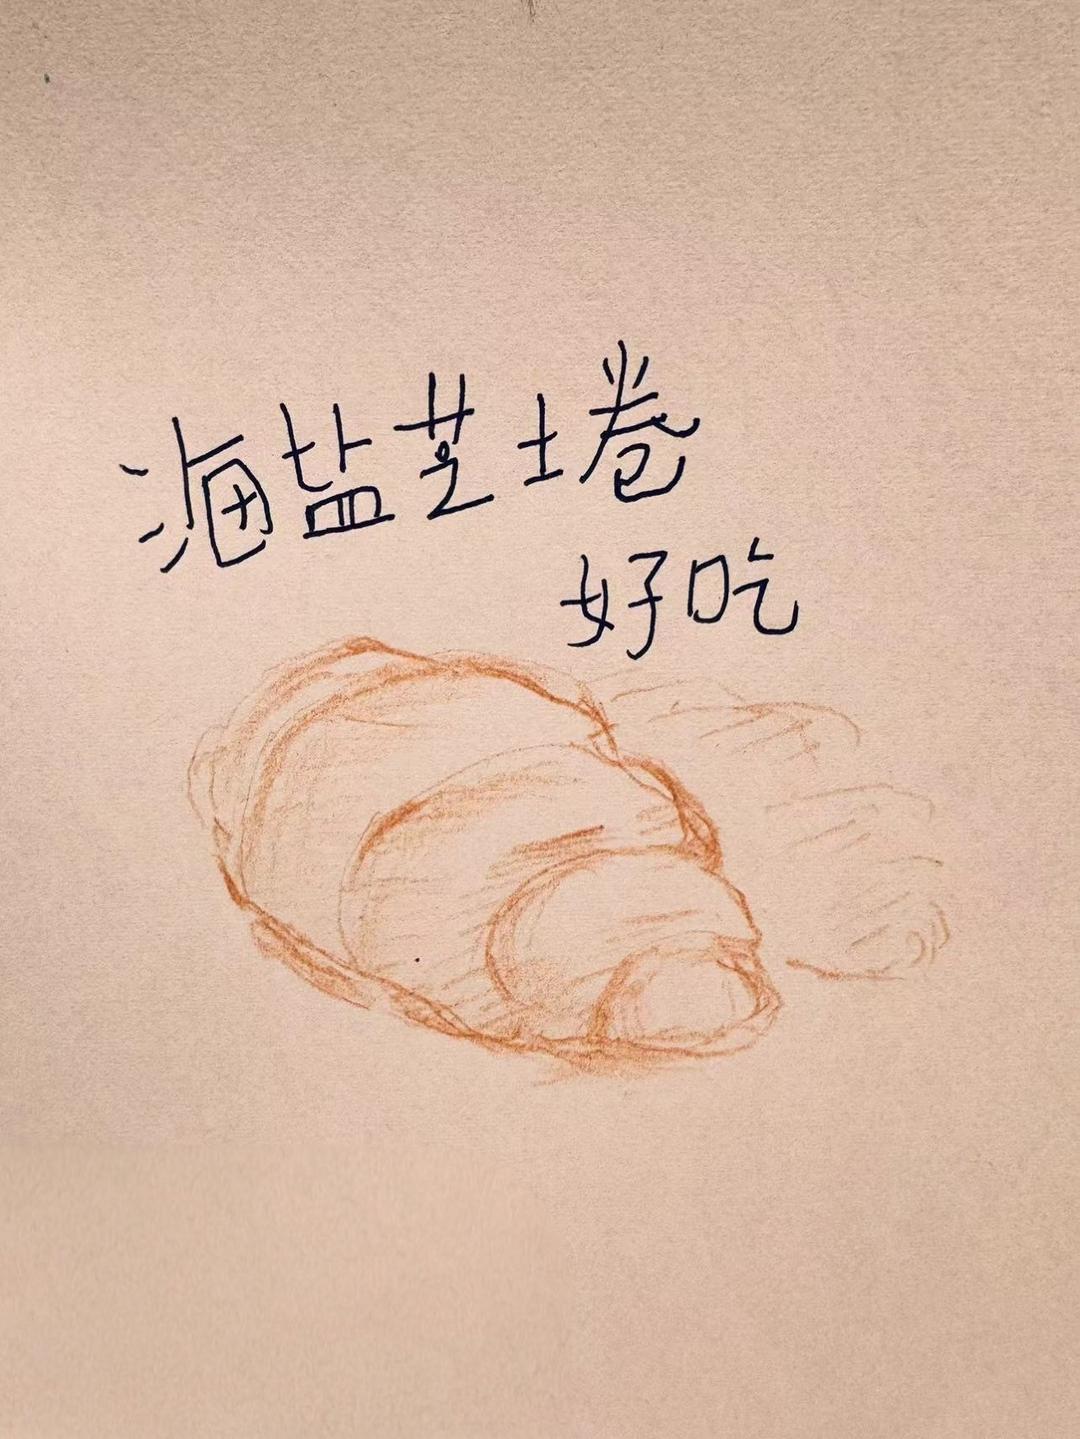 海盐芝士卷
好吃